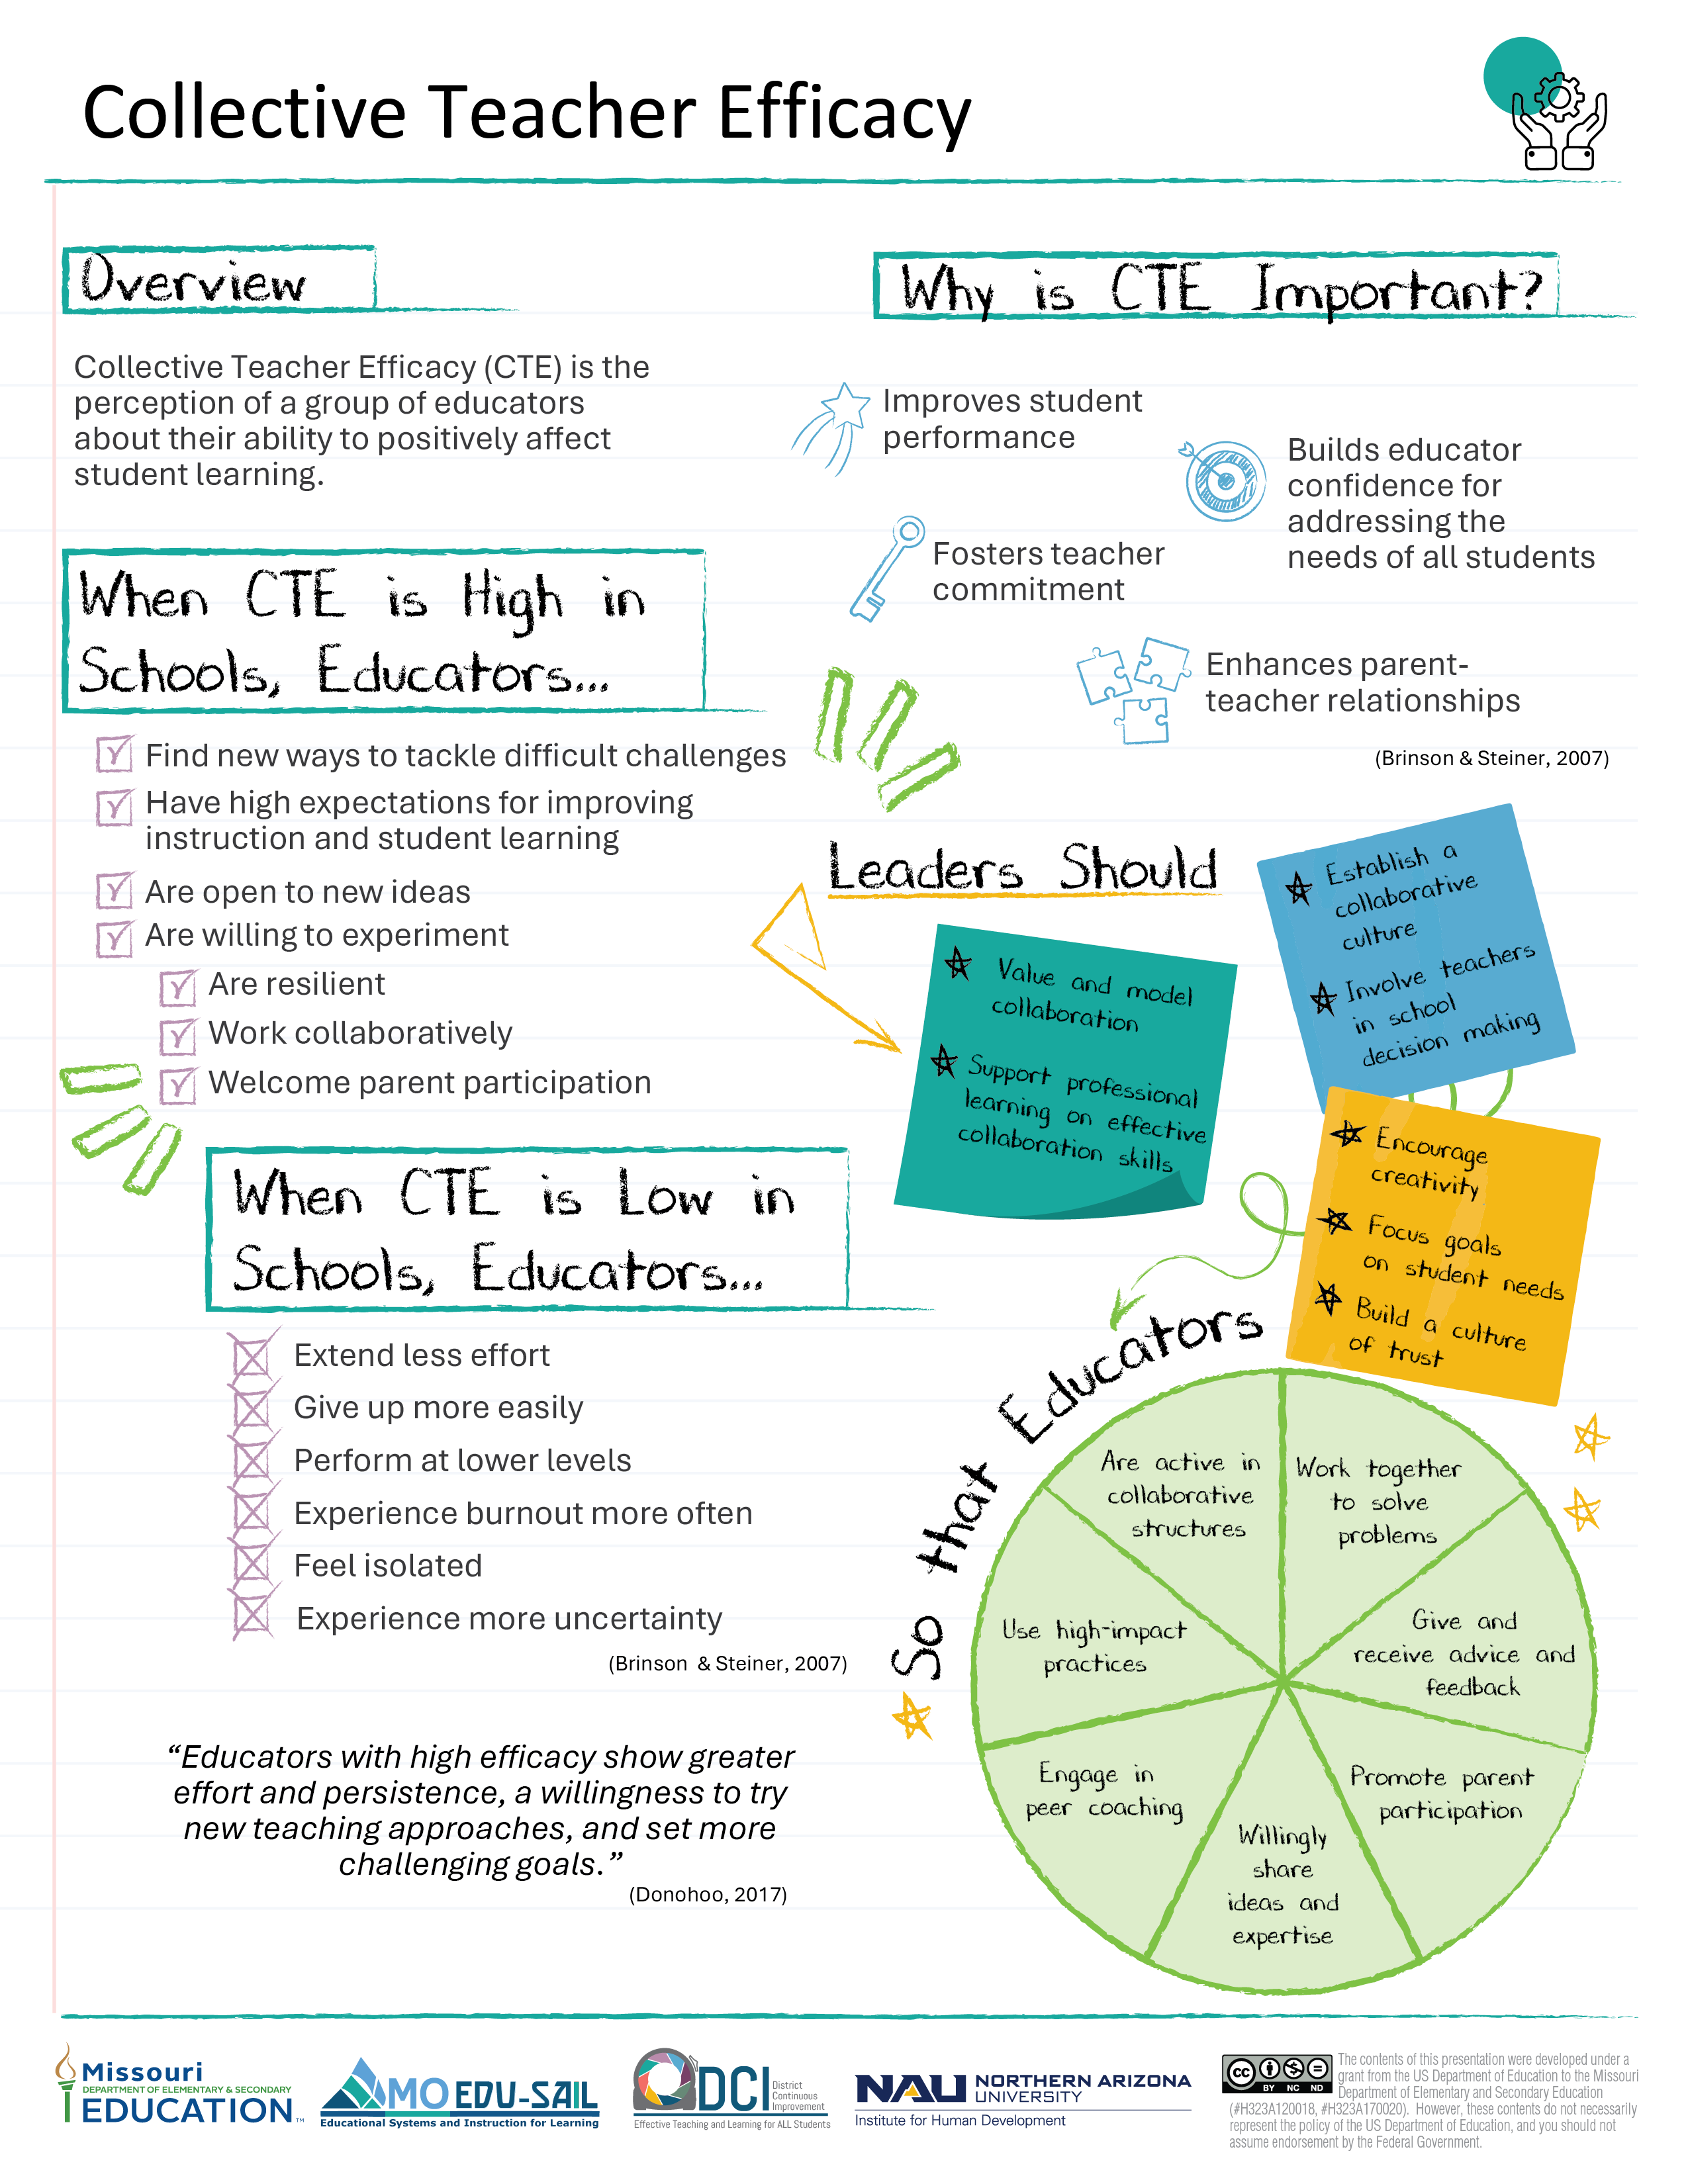 Collective Teacher Efficacy
Overview
Collective Teacher Efficacy (CTE) is the
perception of a group of educators
about their ability to positively affect
student learning.
When CTE is High in
Schools, Educators...
Find new ways to tackle difficult challenges
Have high expectations for improving
instruction and student learning
Are open to new ideas
Are willing to experiment
Are resilient
Work collaboratively
Welcome parent participation
When CTE is Low in
Schools, Educators...
Extend less effort
Give up more easily
Perform at lower levels
Experience burnout more often
Feel isolated
Experience more uncertainty
(Brinson & Steiner, 2007)
“Educators with high efficacy show greater
effort and persistence, a willingness to try
new teaching approaches, and set more
challenging goals.”
(Donohoo, 2017)
Why is CTE Important?
Improves student
performance
Builds educator
confidence for
addressing the
needs of all students
Fosters teacher
commitment
Enhances parent-
teacher relationships
(Brinson & Steiner, 2007)
Leaders Should
Value and model
collaboration
Support professional
learning on effective
collaboration skills
Establish a
collaborative
culture
Involve teachers
in school
decision making
Encourage
creativity
Focus goals
on student needs
Build a culture
of trust
So that Educators
Are active in
collaborative
structures
Work together
to solve
problems
Give and
receive advice and
feedback
Promote parent
participation
Willingly
share
ideas and
expertise
Engage in
peer coaching
Use high-impact
practices
Missouri
DEPARTMENT OF ELEMENTARY & SECONDARY
EDUCATION™
MO EDU-SAIL
Educational Systems and Instruction for Learning
DCI
District
Continuous
Improvement
Effective Teaching and Learning for ALL Students
NAU NORTHERN ARIZONA
UNIVERSITY
Institute for Human Development
CC
BY NC ND
The contents of this presentation were developed under a
grant from the US Department of Education to the Missouri
Department of Elementary and Secondary Education
(#H323A120018, #H323A170020). However, these contents do not necessarily
represent the policy of the US Department of Education, and you should not
assume endorsement by the Federal Government.